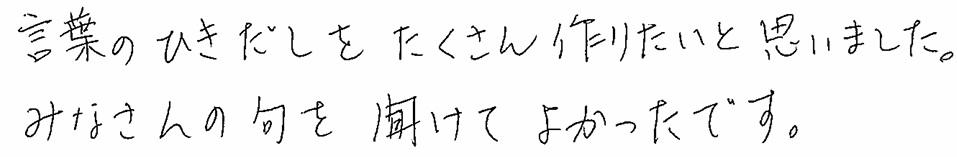 言葉のひきだしをたくさん作りたいと思いました。
みなさんの句を聞けてよかったです。